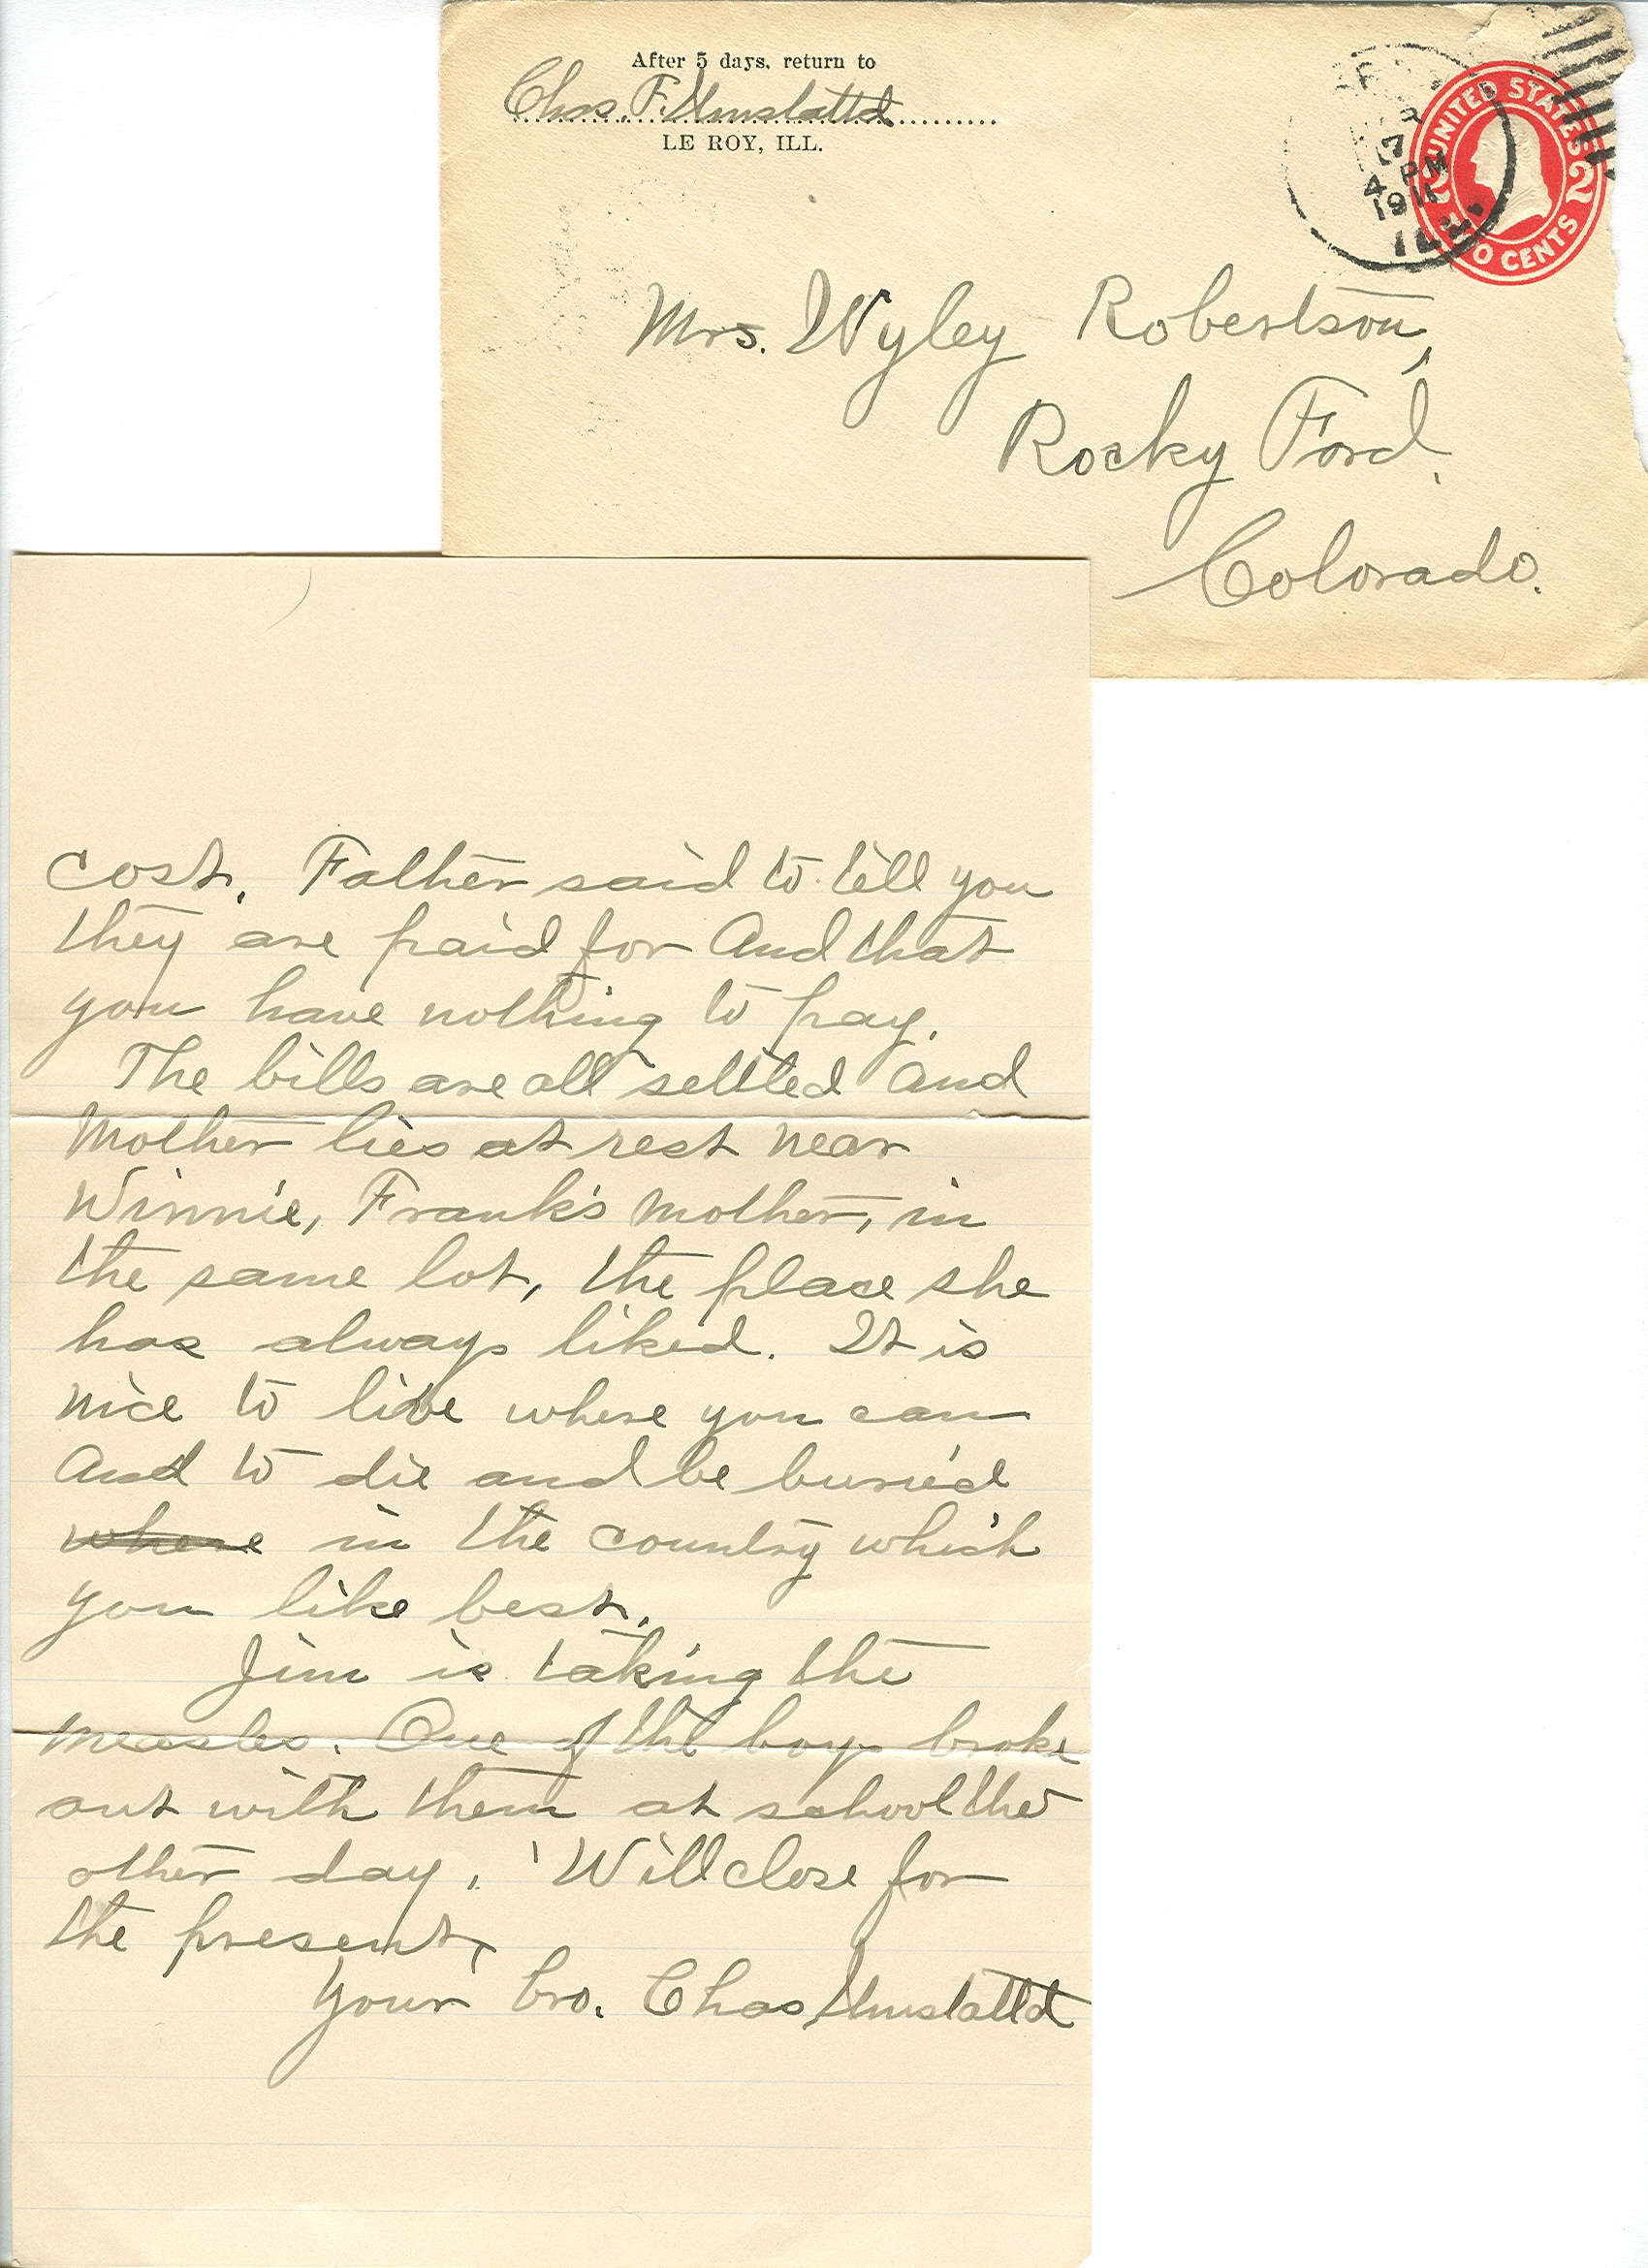 After 5 days, return to
Chas. F. Umstattd
LE ROY, ILL.
R
17
4 PM
191
ILL.
UNITED STATES
TWO CENTS
Mrs. Wyley Robertson,
Rocky Ford,
Colorado.
cost. Father said to tell you
they are paid for And that
you have nothing to pay.
The bills are all settled And
Mother lies at rest near
Winnie, Frank's Mother, in
the same lot, the place she
has always liked. It is
nice to live where you can
And to die and be buried
where in the country which
you like best.
Jim is taking the
measles. One of the boys broke
out with them at school the
other day. Will close for
the present,
Your bro. Chas Umstattd